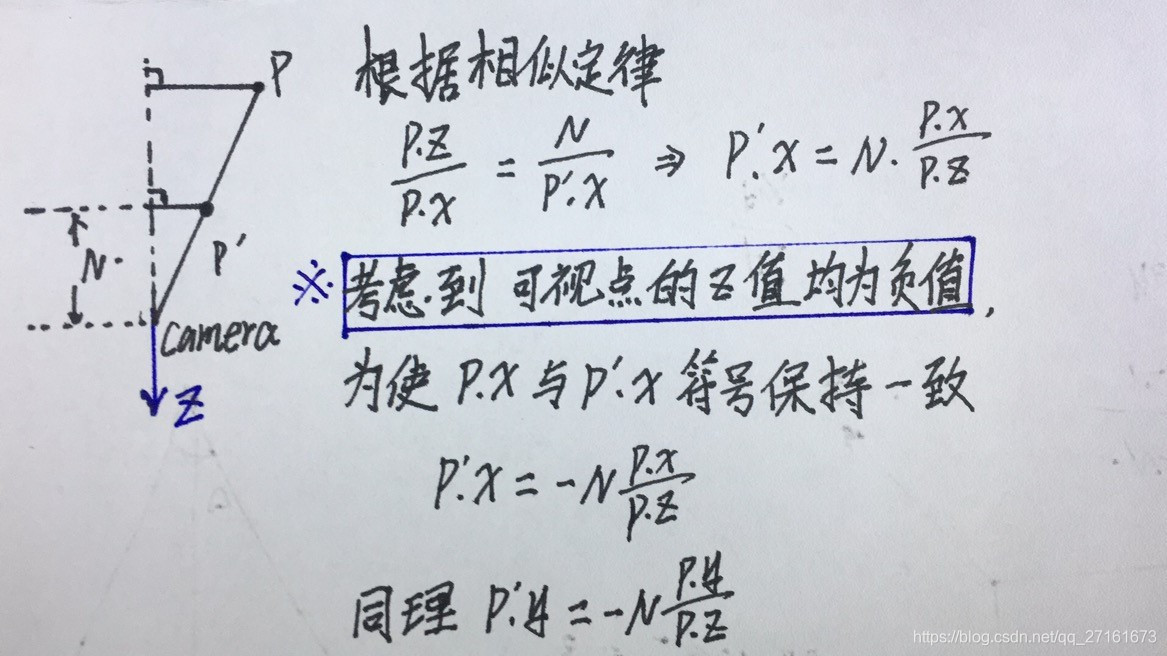 P
根据相似定律
P.Z/P.X = N/P'.X ⇒ P'.X = N · P.X/P.Z
N
P'
camera
Z
※ 考虑到 可视点的Z值均为负值,
为使 P.X 与 P'.X 符号保持一致
P'.X = -N P.X/P.Z
同理 P'.y = -N P.y/P.Z
https://blog.csdn.net/qq_27161673